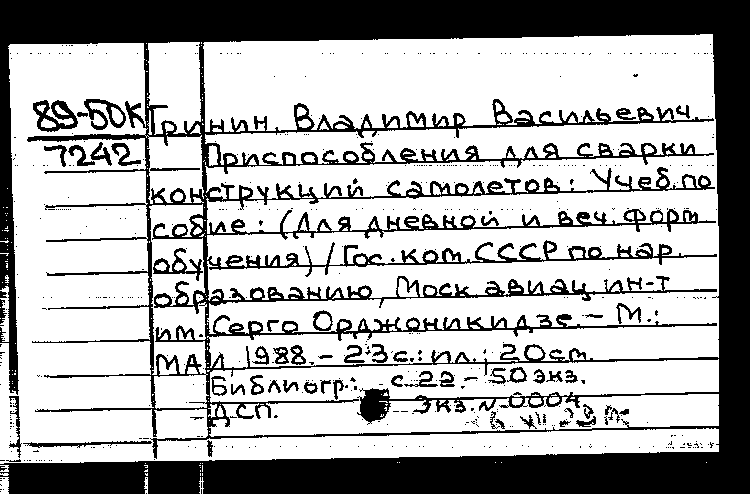 89-50К Гринин, Владимир Васильевич.
7242 Приспособления для сварки
конструкций самолетов: Учеб. по
собие: (Для дневной и веч. форм
обучения) / Гос. ком. СССР по нар.
образованию, Моск авиац ин-т
им. Серго Орджоникидзе. - М.:
МАИ, 1988. - 23 с.: ил.; 20 см.
Библиогр.: с. 22 - 50 экз.
ДСП. Экз. N 0004.